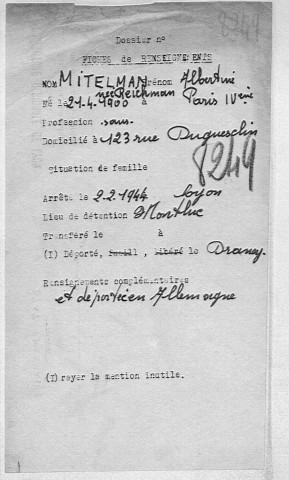 8249
Dossier n°
FICHES de RENSEIGNEMENTS
NOM MITELMAN Prénom Albertine
née Reichman
Né le 21-4-1900 à Paris IVème
Profession sans
Domicilié à 123 rue Duguesclin
8249
Situation de famille
Arrêté le 2-2-1944 Lyon
Lieu de détention Montluc
Transféré le à
(I) Déporté, fusillé, libéré le Drancy.
Renseignements complémentaires
et déportée en Allemagne
(I) rayer la mention inutile.